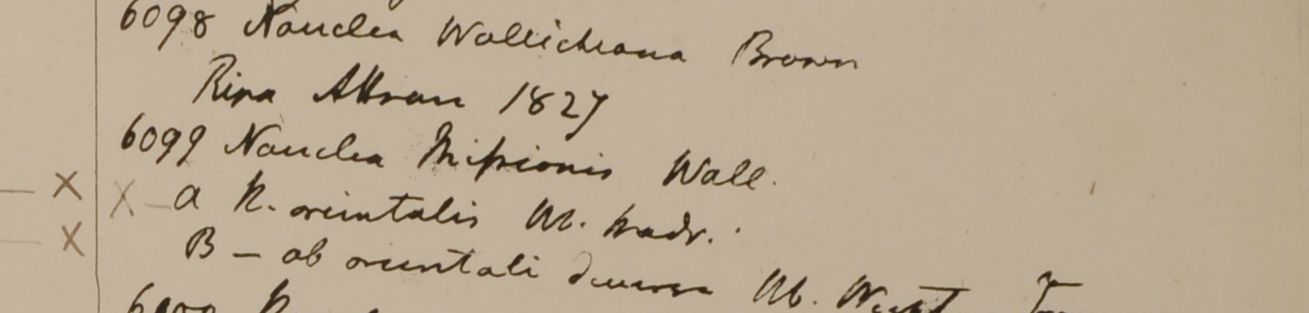 6098 Nauclea Wallichiana Brown
Ripa Attran 1827
6099 Nauclea Missionis Wall.
X X a N. orientalis Hb. Madr.
X B – ab orientali diversa Hb. Wight